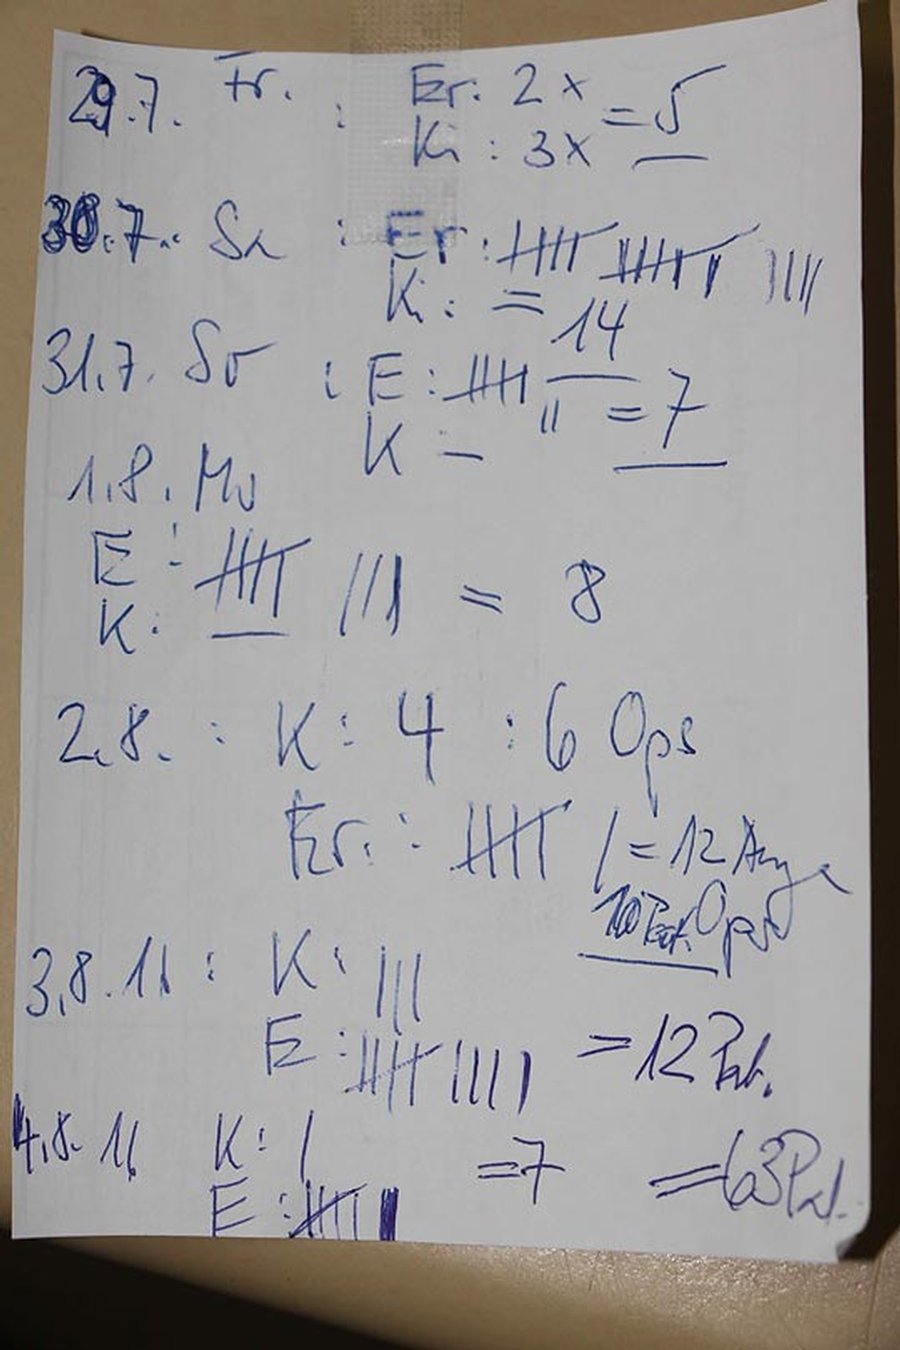 29.7. Fr. : Er: 2x
Ki: 3x = 5
30.7. Sa : Er: |||| |||| ||||
Ki: =
14
31.7. So : E: |||| || = 7
K –
1.8. Mo
E: |||| ||| = 8
K: —
2.8. : K: 4 : 6 Ops
Er.: |||| | = 12 Auge
10 Pat. Ops
3.8.16 : K: |||
E: |||| |||| = 12 Pat.
4.8.16 K: | = 7 = 63 Pat.
E: |||| |